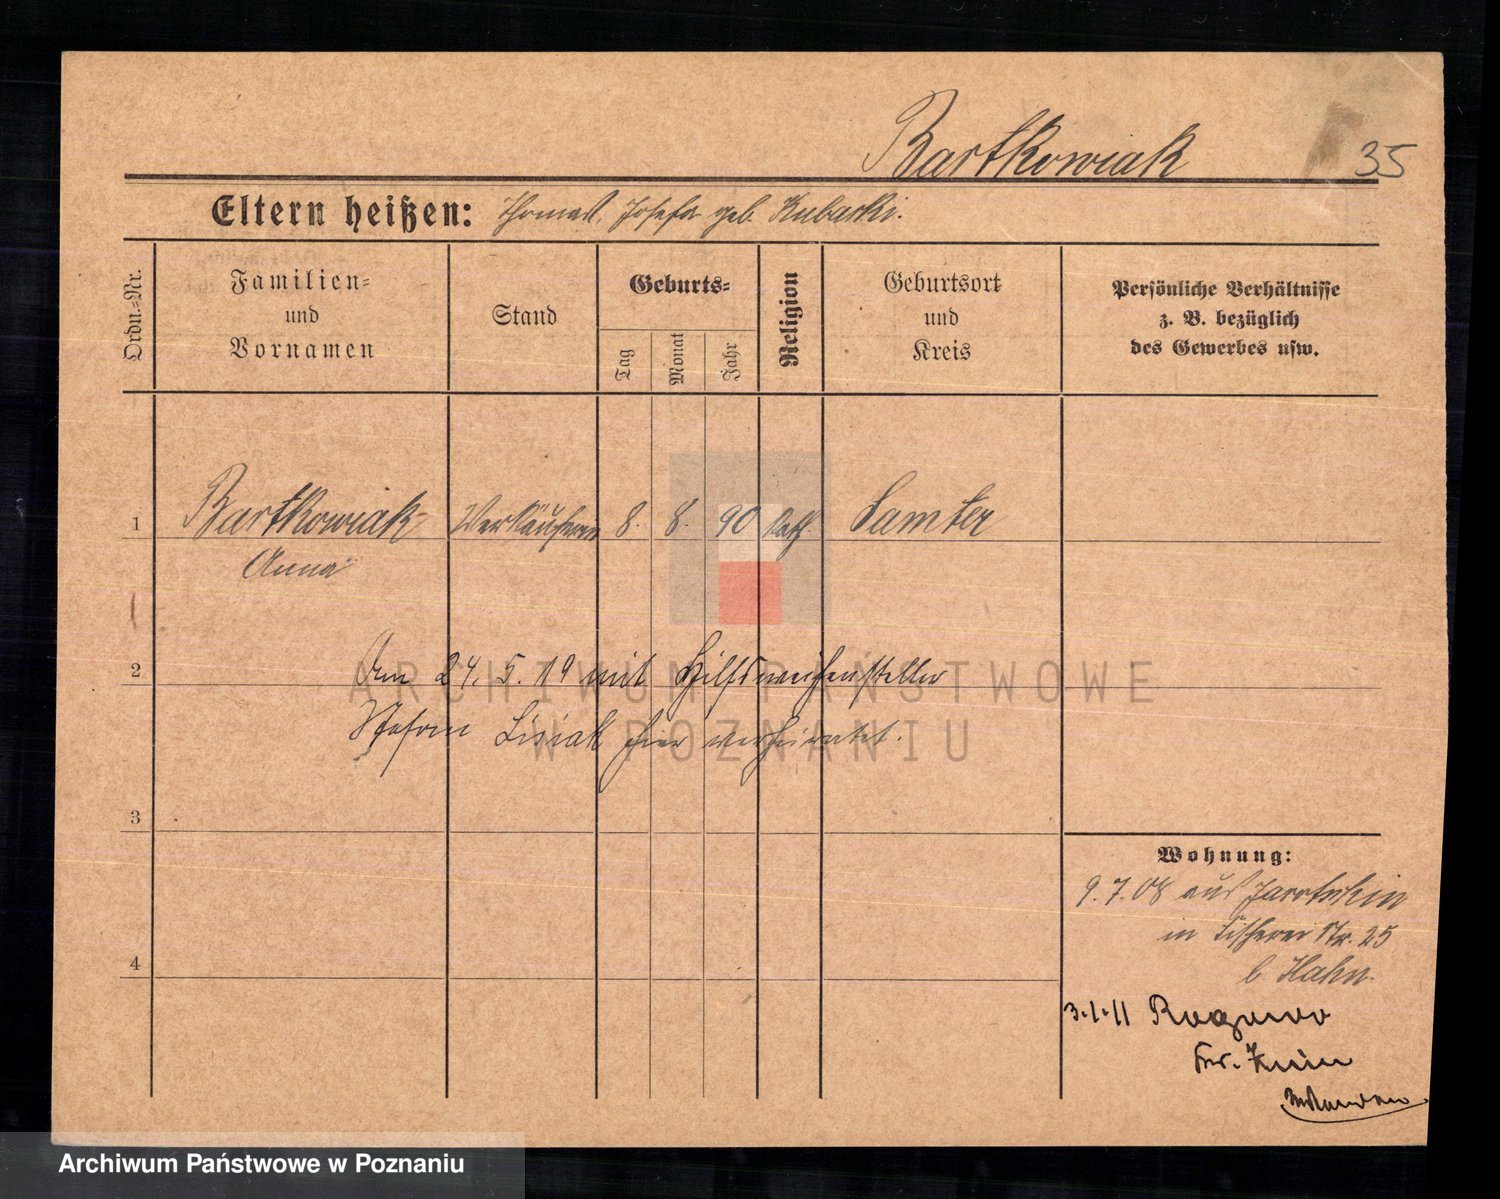 Bartkowiak 35
Eltern heißen: Thomas, Josefa geb. Kubacki.
Ordn.-Nr.
Familien-
und
Vornamen
Stand
Geburts-
Tag
Monat
Jahr
Religion
Geburtsort
und
Kreis
Persönliche Verhältnisse
z. B. bezüglich
des Gewerbes usw.
1 Bartkowiak Verkäuferin 8. 8. 90 kath Samter
Anna
2 Am 24. 5. 19 mit Hilfsweichensteller
Stefan Lisiak hier verheiratet.
3
4
Wohnung:
9. 7. 08 aus Jarotschin
in Fischerei Str. 25
b. Hahn.
3.1.11 Rogowo
ARCHIWUM PAŃSTWOWE
W POZNANIU
Archiwum Państwowe w Poznaniu